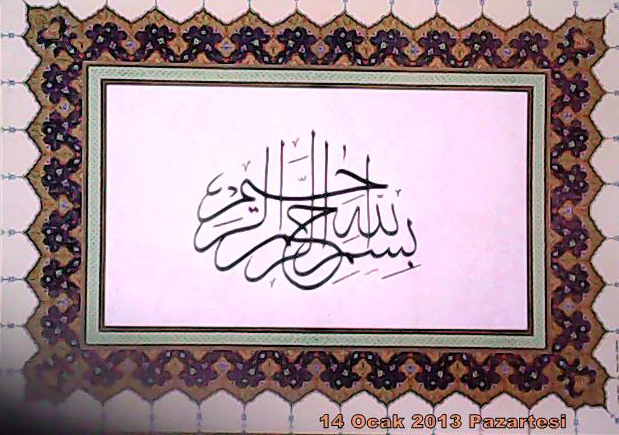 بسم الله الرحمن الرحيم
14 Ocak 2013 Pazartesi